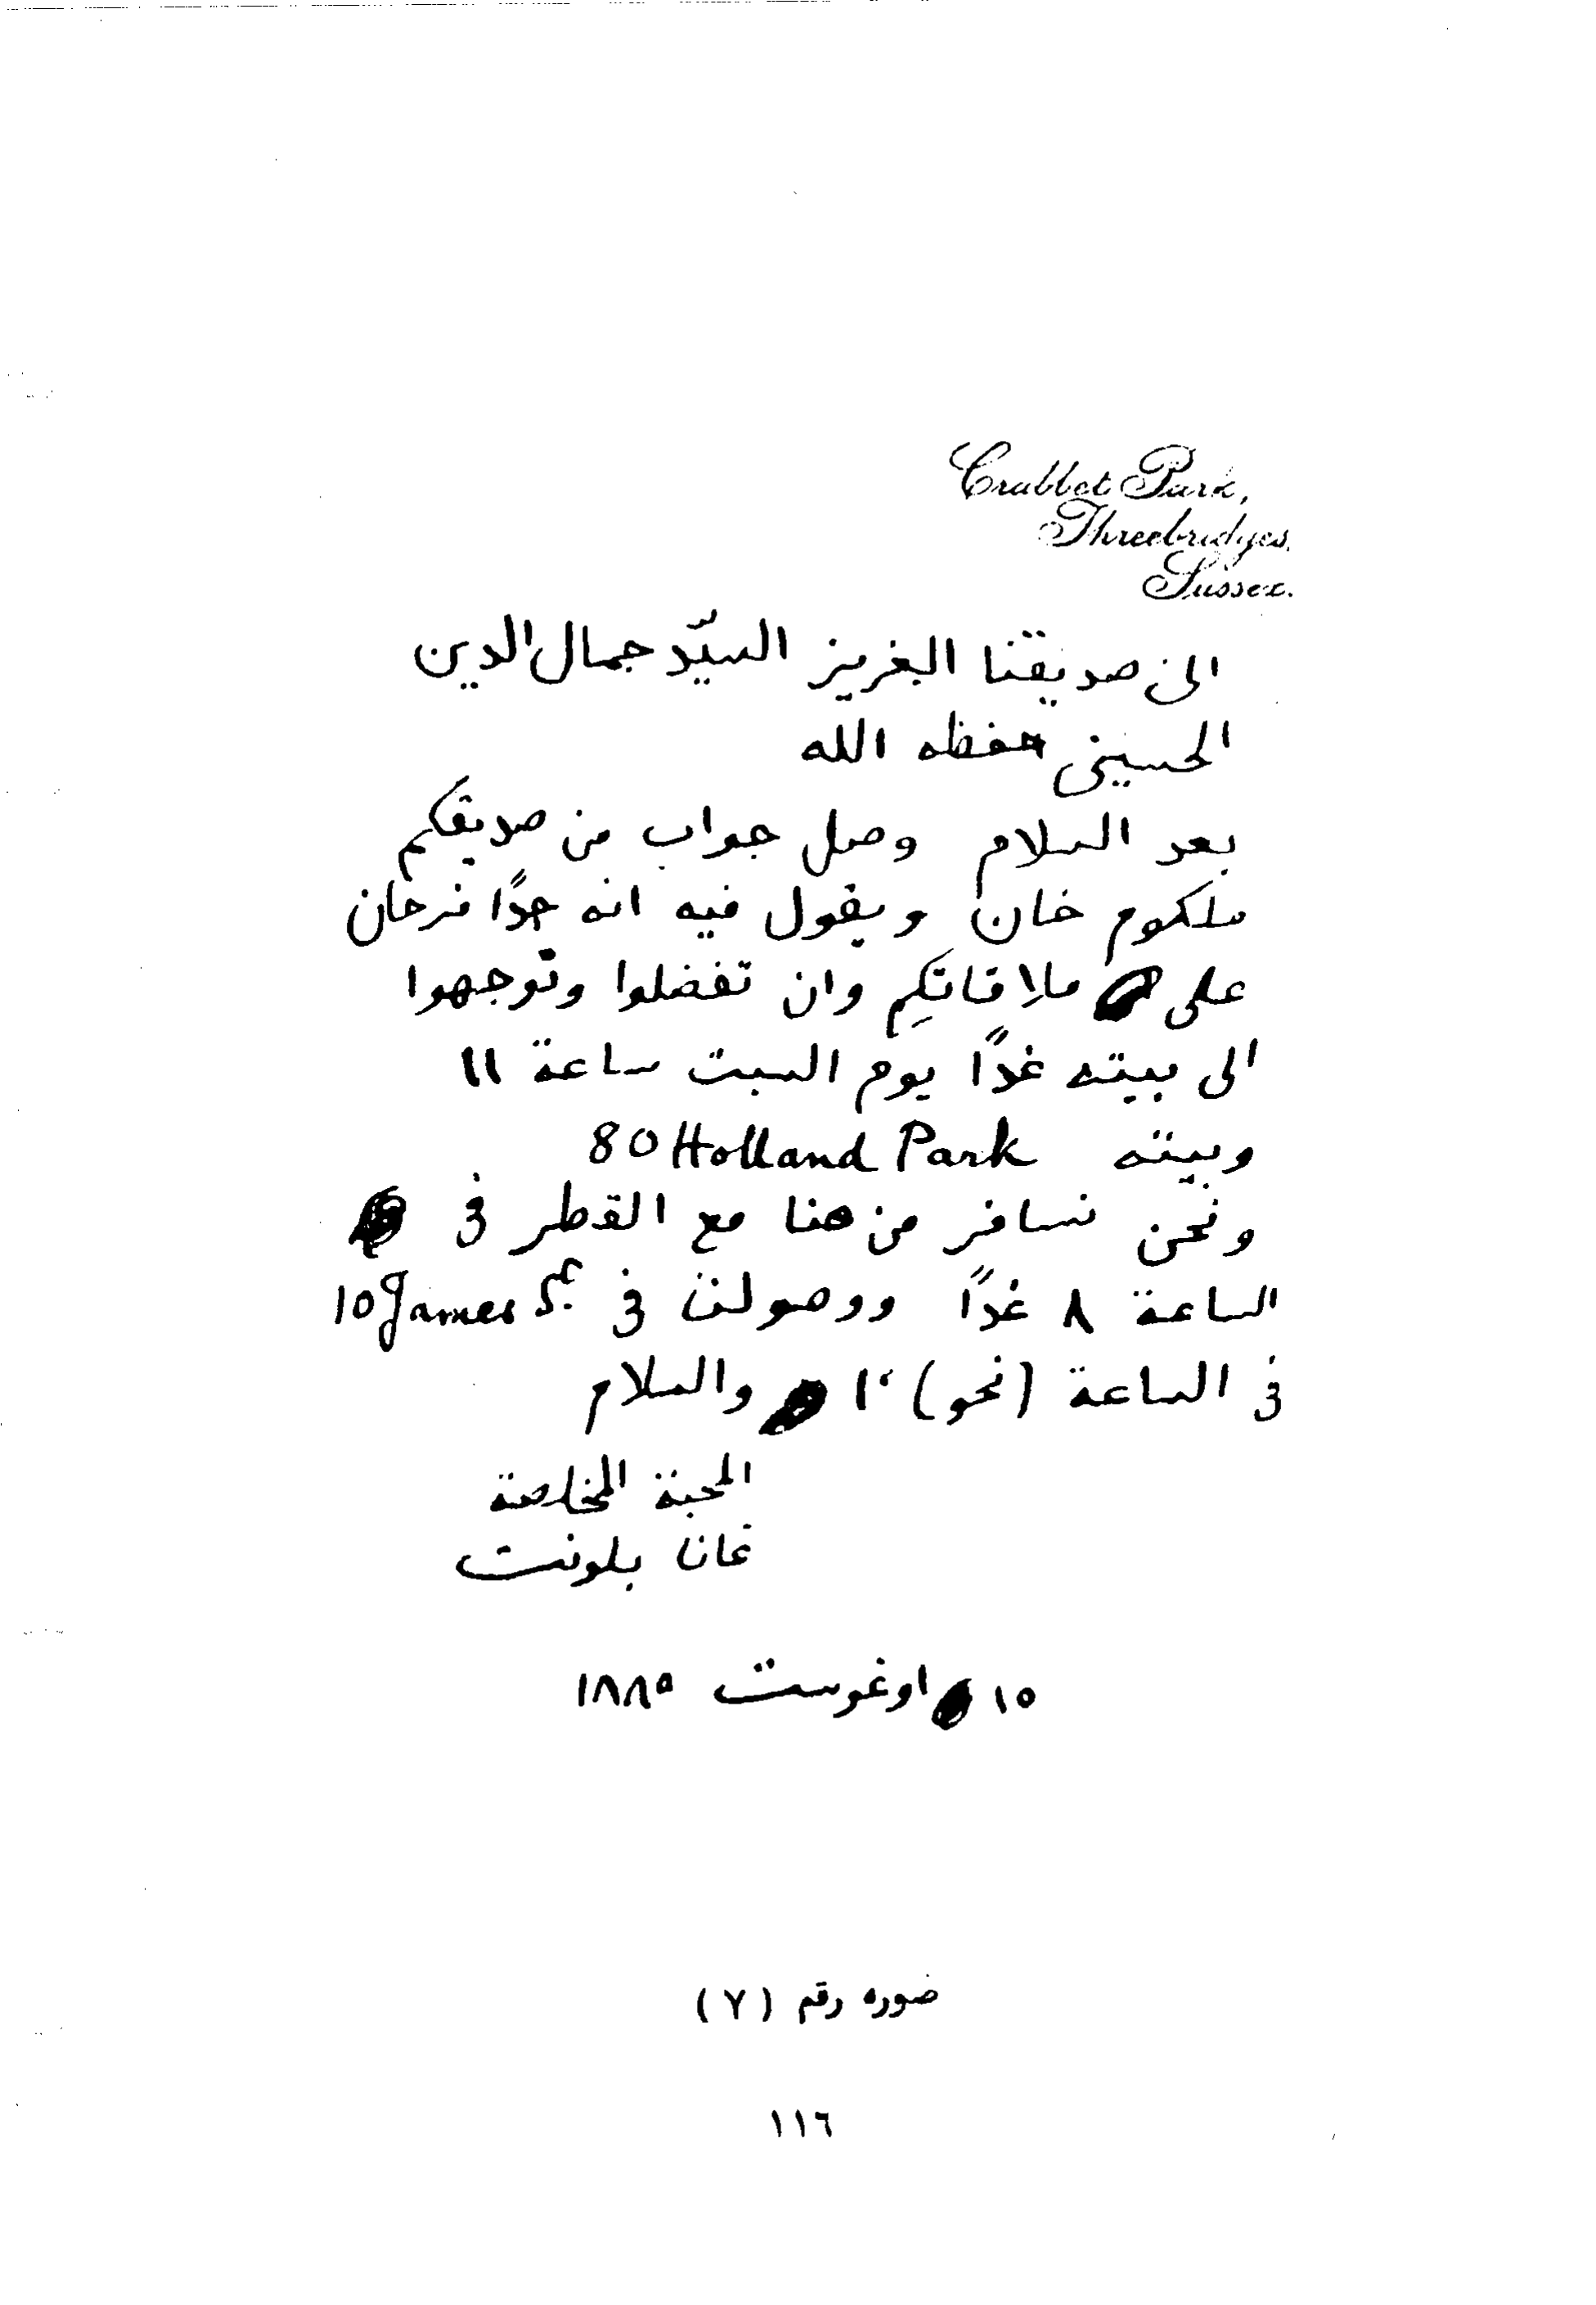 Crabbet Park,
Threebridges.
Sussex.
الى صديقنا العزيز السيّد جمال الدين
الحسينى حفظه الله
بعد السلام وصل جواب من صديقكم
ملكوم خان ويقول فيه انه جدًا فرحان
على ملاقاتكم وان تفضلوا وتوجهوا
الى بيته غدًا يوم السبت ساعة ١١
وبيته 80 Holland Park
ونحن نسافر من هنا مع القطر فى
الساعة ٨ غدًا ووصولنا فى 10 James St.
فى الساعة (نحو) ١٠ والسلام
المحبة المخلصة
عانا بلونت
١٥ اوغوست ١٨٨٥
صوره رقم (٧)
١١٦